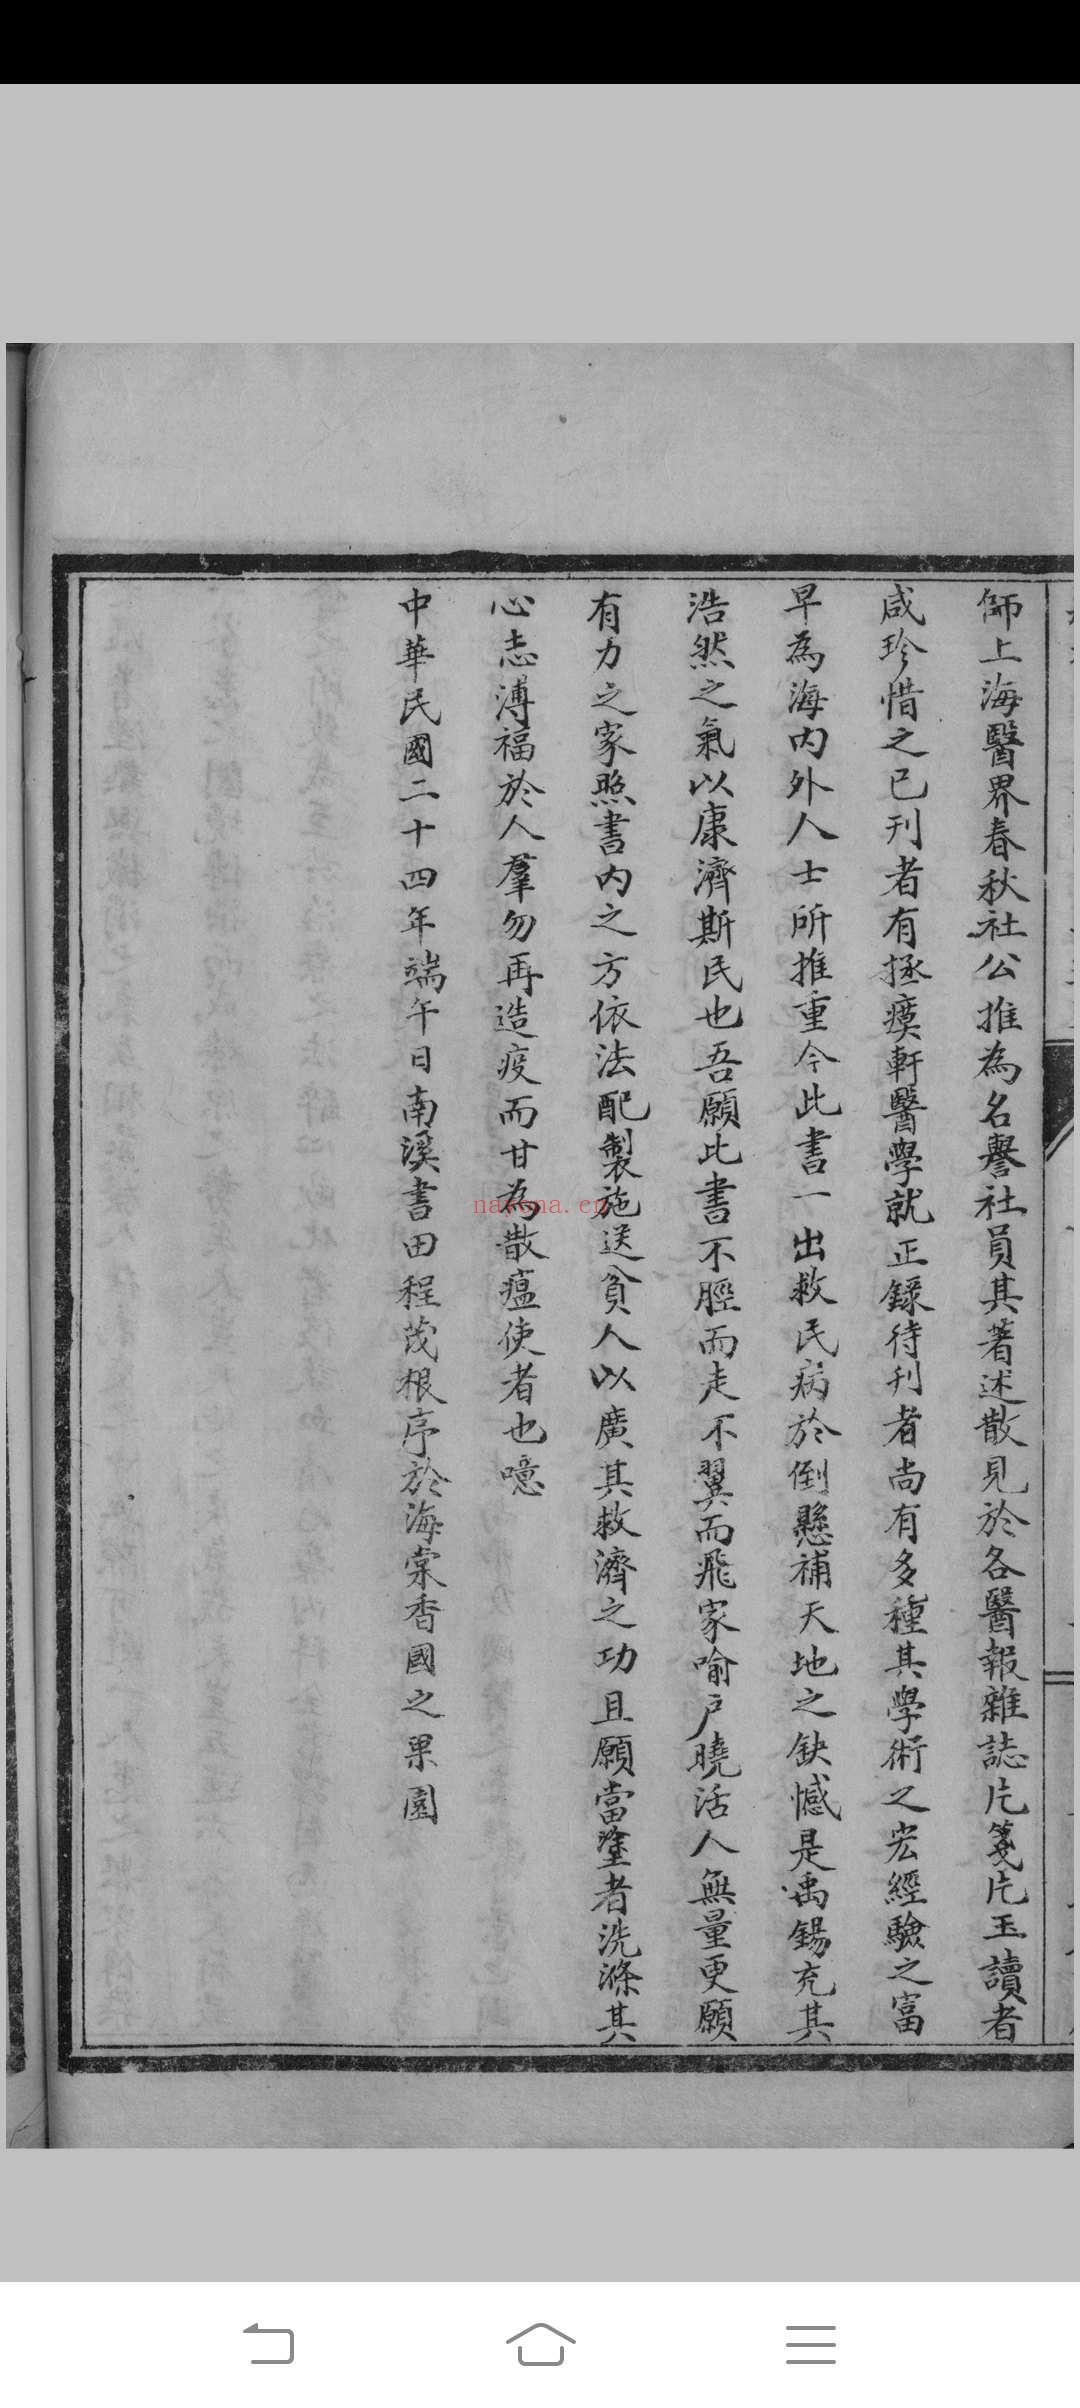 師上海醫界春秋社公推為名譽社員其著述散見於各醫報雜誌片箋片玉讀者
咸珍惜之已刊者有拯瘼軒醫學就正錄待刊者尚有多種其學術之宏經驗之富
早為海內外人士所推重今此書一出救民病於倒懸補天地之缺憾是禹錫充其
浩然之氣以康濟斯民也吾願此書不脛而走不翼而飛家喻戶曉活人無量更願
有力之家照書內之方依法配製施送貧人以廣其救濟之功且願當塗者洗滌其
心志溥福於人羣勿再造疫而甘為散瘟使者也噫
中華民國二十四年端午日南溪書田程茂根序於海棠香國之果園
nayona.cn